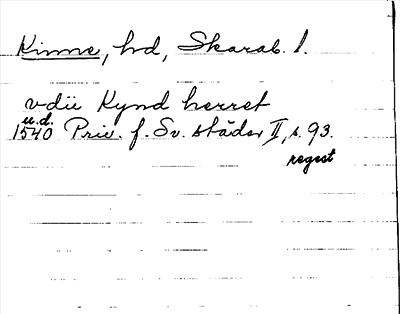 Kinne, hd, Skarab. l.
vdü Kynd herret
u.d.
1540 Priv. f. Sv. städer II, s. 93.
regest